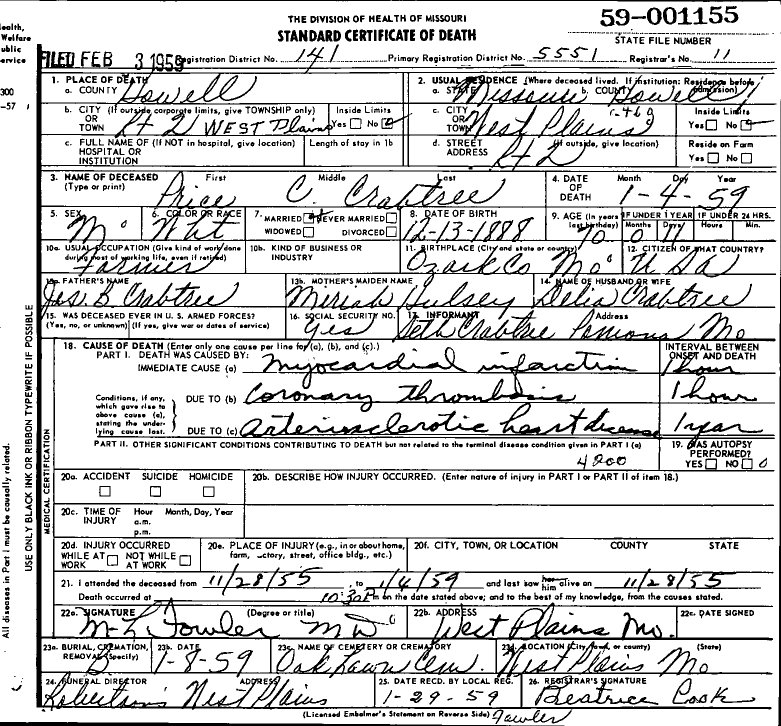 THE DIVISION OF HEALTH OF MISSOURI
59-001155
STANDARD CERTIFICATE OF DEATH
STATE FILE NUMBER
ealth,
Welfare
ublic
ervice
FILED FEB 3 1959 Registration District No. 141 Primary Registration District No. 5551 Registrar's No. 11
300
-57
1. PLACE OF DEATH
a. COUNTY Howell
2. USUAL RESIDENCE (Where deceased lived. If institution: Residence before admission)
a. STATE Missouri b. COUNTY Howell
b. CITY (If outside corporate limits, give TOWNSHIP only) OR TOWN Rt 2 WEST Plains
Inside Limits Yes No
c. CITY OR TOWN West Plains
Inside Limits Yes No
c. FULL NAME OF (If NOT in hospital, give location) HOSPITAL OR INSTITUTION
Length of stay in 1b
d. STREET ADDRESS (If outside, give location) Rt 2
Reside on Farm Yes No
3. NAME OF DECEASED (Type or print) First Middle Last
Price C. Crabtree
4. DATE OF DEATH Month Day Year
1-4-59
5. SEX M
6. COLOR OR RACE Wht
7. MARRIED NEVER MARRIED WIDOWED DIVORCED
8. DATE OF BIRTH 12-13-1888
9. AGE (In years last birthday) 70
IF UNDER 1 YEAR Months 0 Days
IF UNDER 24 HRS. Hours Min.
10a. USUAL OCCUPATION (Give kind of work done during most of working life, even if retired) Farmer
10b. KIND OF BUSINESS OR INDUSTRY
11. BIRTHPLACE (City and state or country) Ozark Co Mo
12. CITIZEN OF WHAT COUNTRY? USA
13a. FATHER'S NAME Jas. B. Crabtree
13b. MOTHER'S MAIDEN NAME Miriah Hulsey
14. NAME OF HUSBAND OR WIFE Delia Crabtree
15. WAS DECEASED EVER IN U. S. ARMED FORCES? (Yes, no, or unknown) (If yes, give war or dates of service)
16. SOCIAL SECURITY NO. yes
17. INFORMANT Address
Seth Crabtree Pomona Mo
18. CAUSE OF DEATH (Enter only one cause per line for (a), (b), and (c).)
INTERVAL BETWEEN ONSET AND DEATH
PART I. DEATH WAS CAUSED BY:
IMMEDIATE CAUSE (a) myocardial infarction 1 hour
Conditions, if any, which gave rise to above cause (a), stating the underlying cause last.
DUE TO (b) Coronary thrombosis 1 hour
DUE TO (c) Arteriosclerotic heart disease 1 year
PART II. OTHER SIGNIFICANT CONDITIONS CONTRIBUTING TO DEATH but not related to the terminal disease condition given in PART I (a)
4200
19. WAS AUTOPSY PERFORMED? YES NO
20a. ACCIDENT SUICIDE HOMICIDE
20b. DESCRIBE HOW INJURY OCCURRED. (Enter nature of injury in PART I or PART II of item 18.)
20c. TIME OF INJURY Hour Month, Day, Year
a.m.
p.m.
20d. INJURY OCCURRED WHILE AT WORK NOT WHILE AT WORK
20e. PLACE OF INJURY (e.g., in or about home, farm, factory, street, office bldg., etc.)
20f. CITY, TOWN, OR LOCATION COUNTY STATE
21. I attended the deceased from 11/28/55, to 1/4/59 and last saw her him alive on 11/28/55
Death occurred at 10:30 P m on the date stated above; and to the best of my knowledge, from the causes stated.
22a. SIGNATURE (Degree or title) M. L. Fowler MD
22b. ADDRESS West Plains Mo.
22c. DATE SIGNED
23a. BURIAL, CREMATION, REMOVAL (Specify) B
23b. DATE 1-8-59
23c. NAME OF CEMETERY OR CREMATORY Oak Lawn Cem.
23d. LOCATION (City, town, or county) (State) West Plains Mo
24. FUNERAL DIRECTOR ADDRESS Robertson's West Plains
25. DATE RECD. BY LOCAL REG. 1-29-59
26. REGISTRAR'S SIGNATURE Beatrice Cook
(Licensed Embalmer's Statement on Reverse Side) Fowler
MEDICAL CERTIFICATION
USE ONLY BLACK INK OR RIBBON TYPEWRITE IF POSSIBLE
All diseases in Part I must be causally related.